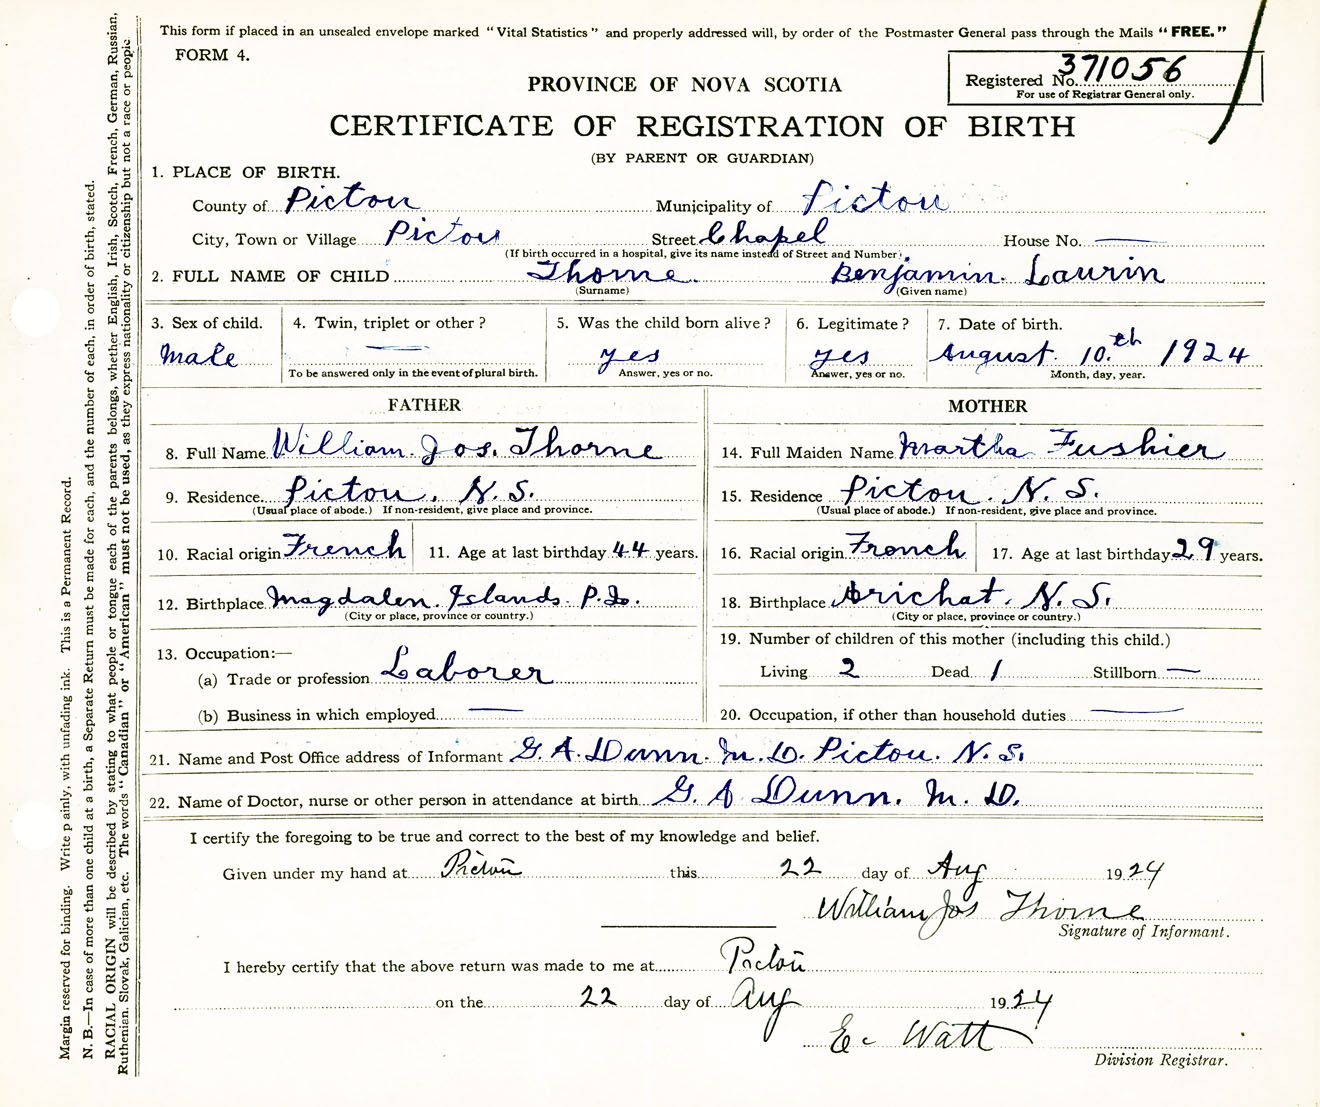 This form if placed in an unsealed envelope marked "Vital Statistics" and properly addressed will, by order of the Postmaster General pass through the Mails "FREE."
FORM 4.
Registered No. 371056
For use of Registrar General only.
PROVINCE OF NOVA SCOTIA
CERTIFICATE OF REGISTRATION OF BIRTH
(BY PARENT OR GUARDIAN)
1. PLACE OF BIRTH.
County of Pictou Municipality of Pictou
City, Town or Village Pictou Street Chapel House No. —
(If birth occurred in a hospital, give its name instead of Street and Number).
2. FULL NAME OF CHILD Thorne Benjamin Laurin
(Surname) (Given name)
3. Sex of child. 4. Twin, triplet or other? 5. Was the child born alive? 6. Legitimate? 7. Date of birth.
Male — yes yes August 10th 1924
To be answered only in the event of plural birth. Answer, yes or no. Answer, yes or no. Month, day, year.
FATHER
8. Full Name William Jos. Thorne
9. Residence. Pictou, N.S.
(Usual place of abode.) If non-resident, give place and province.
10. Racial origin French 11. Age at last birthday 44 years.
12. Birthplace Magdalen Islands P.Q.
(City or place, province or country.)
13. Occupation:—
(a) Trade or profession Laborer
(b) Business in which employed —
MOTHER
14. Full Maiden Name Martha Fushier
15. Residence Pictou. N. S.
(Usual place of abode.) If non-resident, give place and province.
16. Racial origin French 17. Age at last birthday 29 years.
18. Birthplace Arichat. N. S.
(City or place, province or country.)
19. Number of children of this mother (including this child.)
Living 2 Dead 1 Stillborn —
20. Occupation, if other than household duties —
21. Name and Post Office address of Informant G. A. Dunn. M. D. Pictou. N. S.
22. Name of Doctor, nurse or other person in attendance at birth G. A Dunn. M. D.
I certify the foregoing to be true and correct to the best of my knowledge and belief.
Given under my hand at Pictou this 22 day of Aug 1924
William Jos Thorne
Signature of Informant.
I hereby certify that the above return was made to me at Pictou
on the 22 day of Aug 1924
E. Watt
Division Registrar.
Margin reserved for binding. Write plainly, with unfading ink. This is a Permanent Record.
N. B.—In case of more than one child at a birth, a Separate Return must be made for each, and the number of each, in order of birth, stated.
RACIAL ORIGIN will be described by stating to what people or tongue each of the parents belongs, whether English, Irish, Scotch, French, German, Russian,
Ruthenian, Slovak, Galician, etc. The words "Canadian" or "American" must not be used, as they express nationality or citizenship but not a race or people